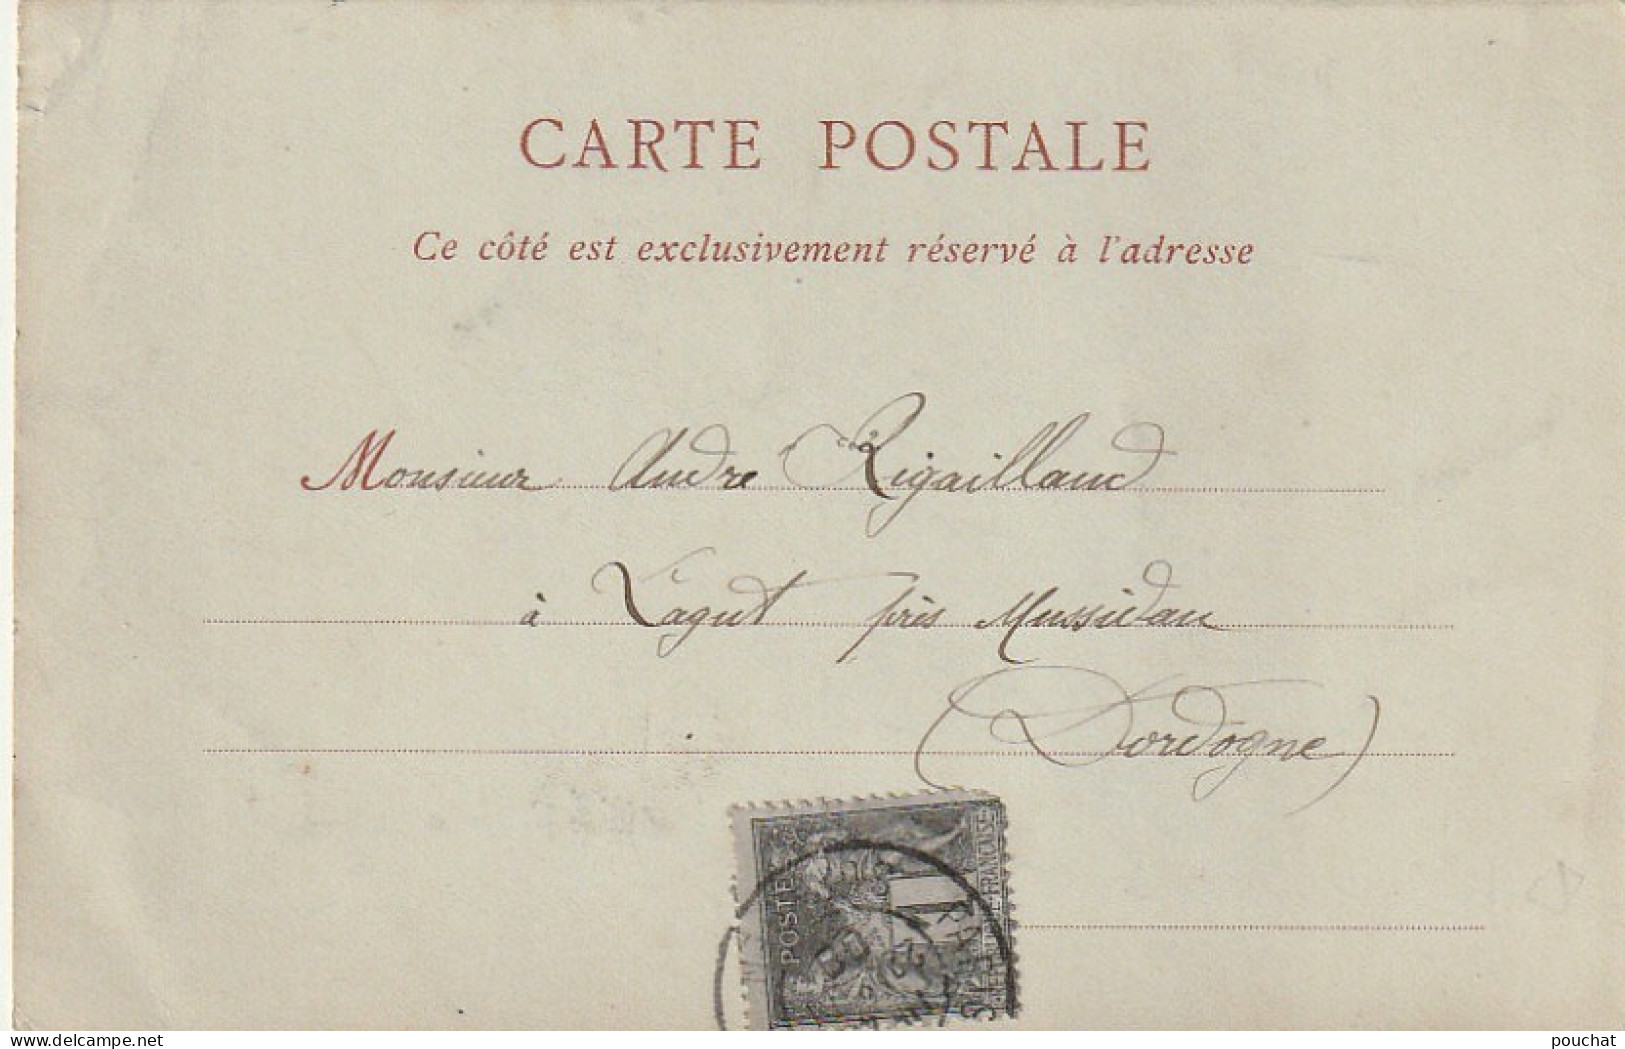 CARTE POSTALE
Ce côté est exclusivement réservé à l'adresse
Monsieur André Rigaillaud
à Lagut près Mussidan
(Dordogne)
POSTES
1
FRANÇAISE
PARIS
delcampe.net
pouchat